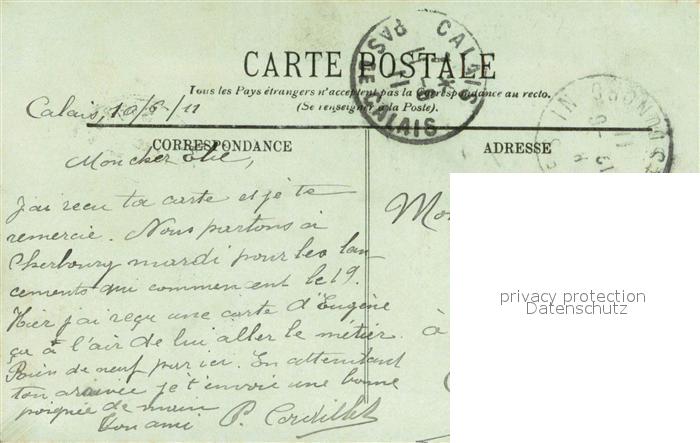 CARTE POSTALE
Tous les Pays étrangers n'acceptent pas la Correspondance au recto.
(Se renseigner à la Poste).
CALAIS
PAS DE CALAIS
Calais, 10/6/11
CORRESPONDANCE
ADRESSE
Mon cher
J'ai reçu ta carte et je te
remercie. Nous partons à
Cherbourg mardi pour les lan-
cements qui commencent le 19.
Hier j'ai reçu une carte d'Eugène
ça à l'air de lui aller le métier.
Rien de neuf par ici. En attendant
ton arrivée je t'envoie une bonne
poignée de main
Ton ami P.
à
privacy protection
Datenschutz